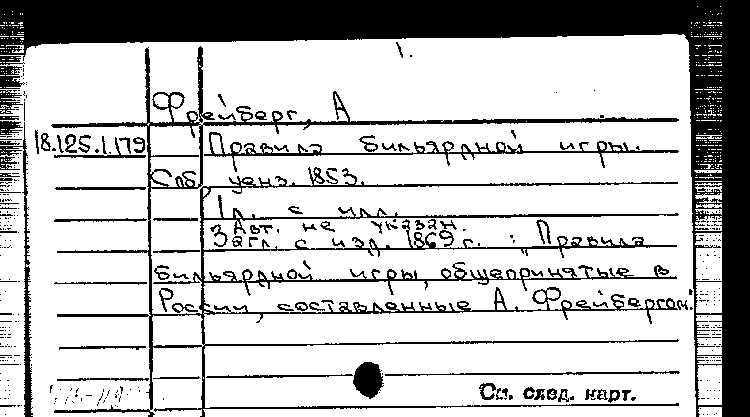 1.
Фрейберг, А
18.125.1.179 Правила бильярдной игры.
Спб, ценз. 1853.
1л. с илл.
Авт. не указан.
Загл. с изд. 1869 г. : „Правила
бильярдной игры, общепринятые в
России, составленные А. Фрейбергом."
См. след. карт.